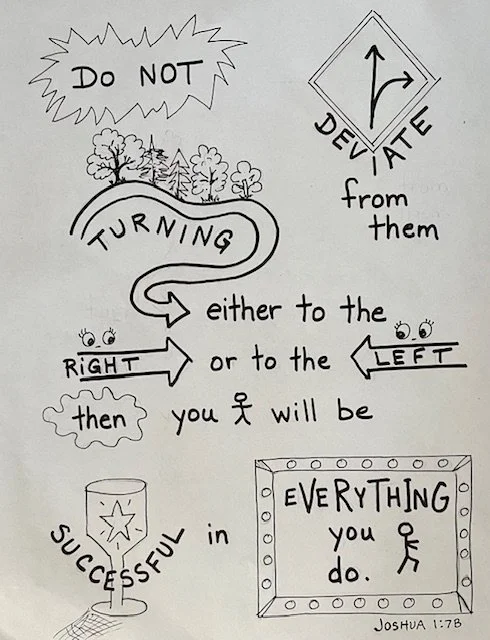 Do NOT
DEVIATE
from
them
TURNING
either to the
RiGHT or to the LEFT
then you will be
SUCCESSFUL in
EVERYTHING
you
do.
JOSHUA 1:7B